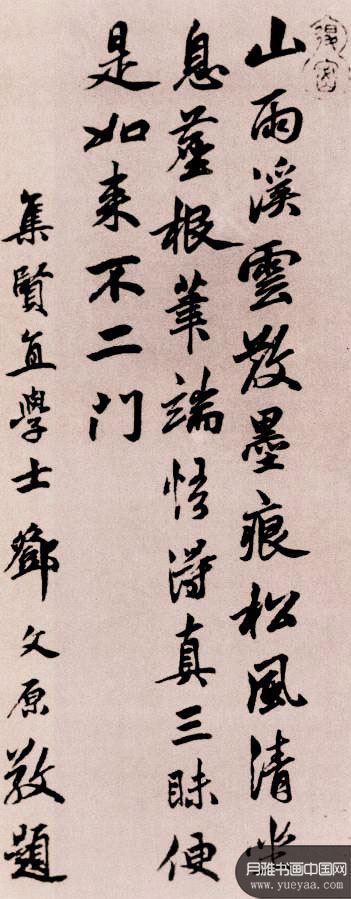 山雨溪雲散墨痕松風清坐
息塵根筆端悟得真三昧便
是如来不二門
集賢直學士鄧文原敬題
月雅书画中国网
www.yueyaa.com